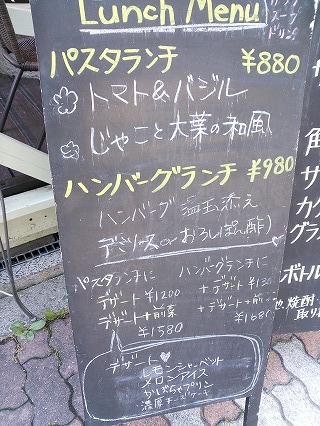 Lunch Menu
パスタランチ ¥880
トマト&バジル
じゃこと大葉の和風
ハンバーグランチ ¥980
ハンバーグ 温玉添え
デミソース or おろしぽん酢)
パスタランチに
デザート ¥1200
デザート+前菜
¥1580
ハンバーグランチに
+デザート ¥130
+デザート+前
¥1680
デザート♡
レモンシャーベット
メロンアイス
かぼちゃプリン
濃厚チーズケーキ
スープ
ドリン
角
サ
カク
グラ
ボトル
焼酎
取り